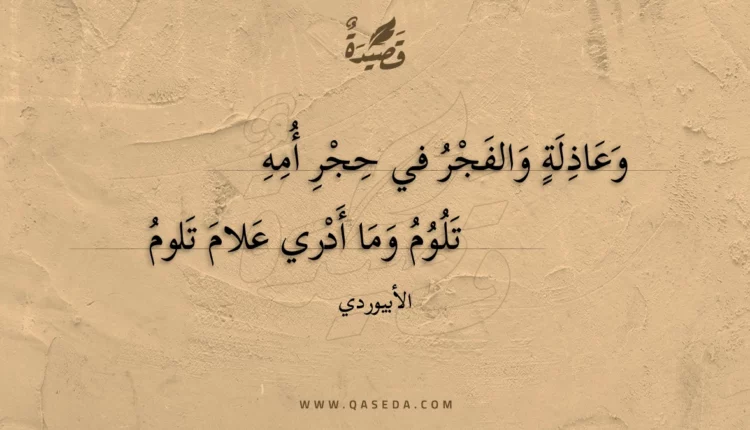 قَصِيدَةٌ
وَعَاذِلَةٍ وَالفَجْرُ في حِجْرِ أُمِهِ
تَلُوُمُ وَمَا أَدْري عَلامَ تَلومُ
الأبيوردي
WWW.QASEDA.COM